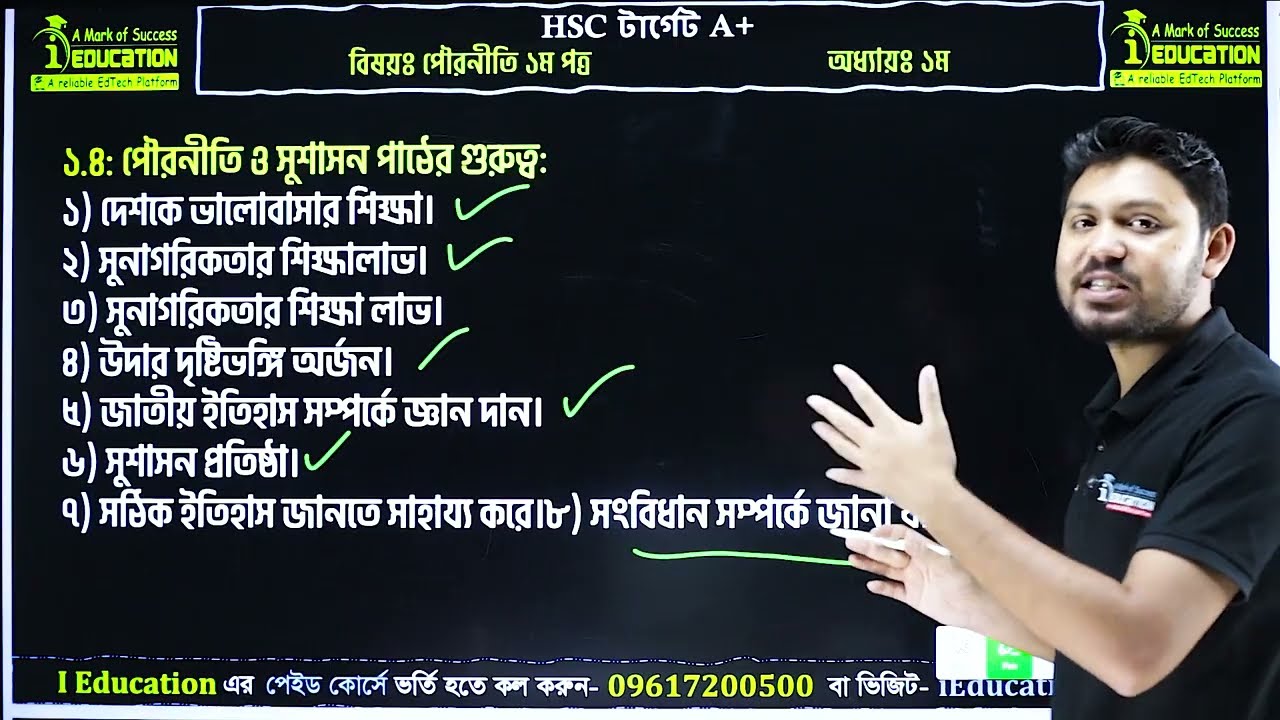 A Mark of Success
i EDUCATION
A reliable EdTech Platform
HSC টার্গেট A+
বিষয়ঃ পৌরনীতি ১ম পত্র
অধ্যায়ঃ ১ম
A Mark of Success
i EDUCATION
A reliable EdTech Platform
১.৪: পৌরনীতি ও সুশাসন পাঠের গুরুত্ব:
১) দেশকে ভালোবাসার শিক্ষা।
২) সুনাগরিকতার শিক্ষালাভ।
৩) সুনাগরিকতার শিক্ষা লাভ।
৪) উদার দৃষ্টিভঙ্গি অর্জন।
৫) জাতীয় ইতিহাস সম্পর্কে জ্ঞান দান।
৬) সুশাসন প্রতিষ্ঠা।
৭) সঠিক ইতিহাস জানতে সাহায্য করে।৮) সংবিধান সম্পর্কে জানা
EDUCATION
I Education এর পেইড কোর্সে ভর্তি হতে কল করুন- 09617200500 বা ভিজিট- iEducati